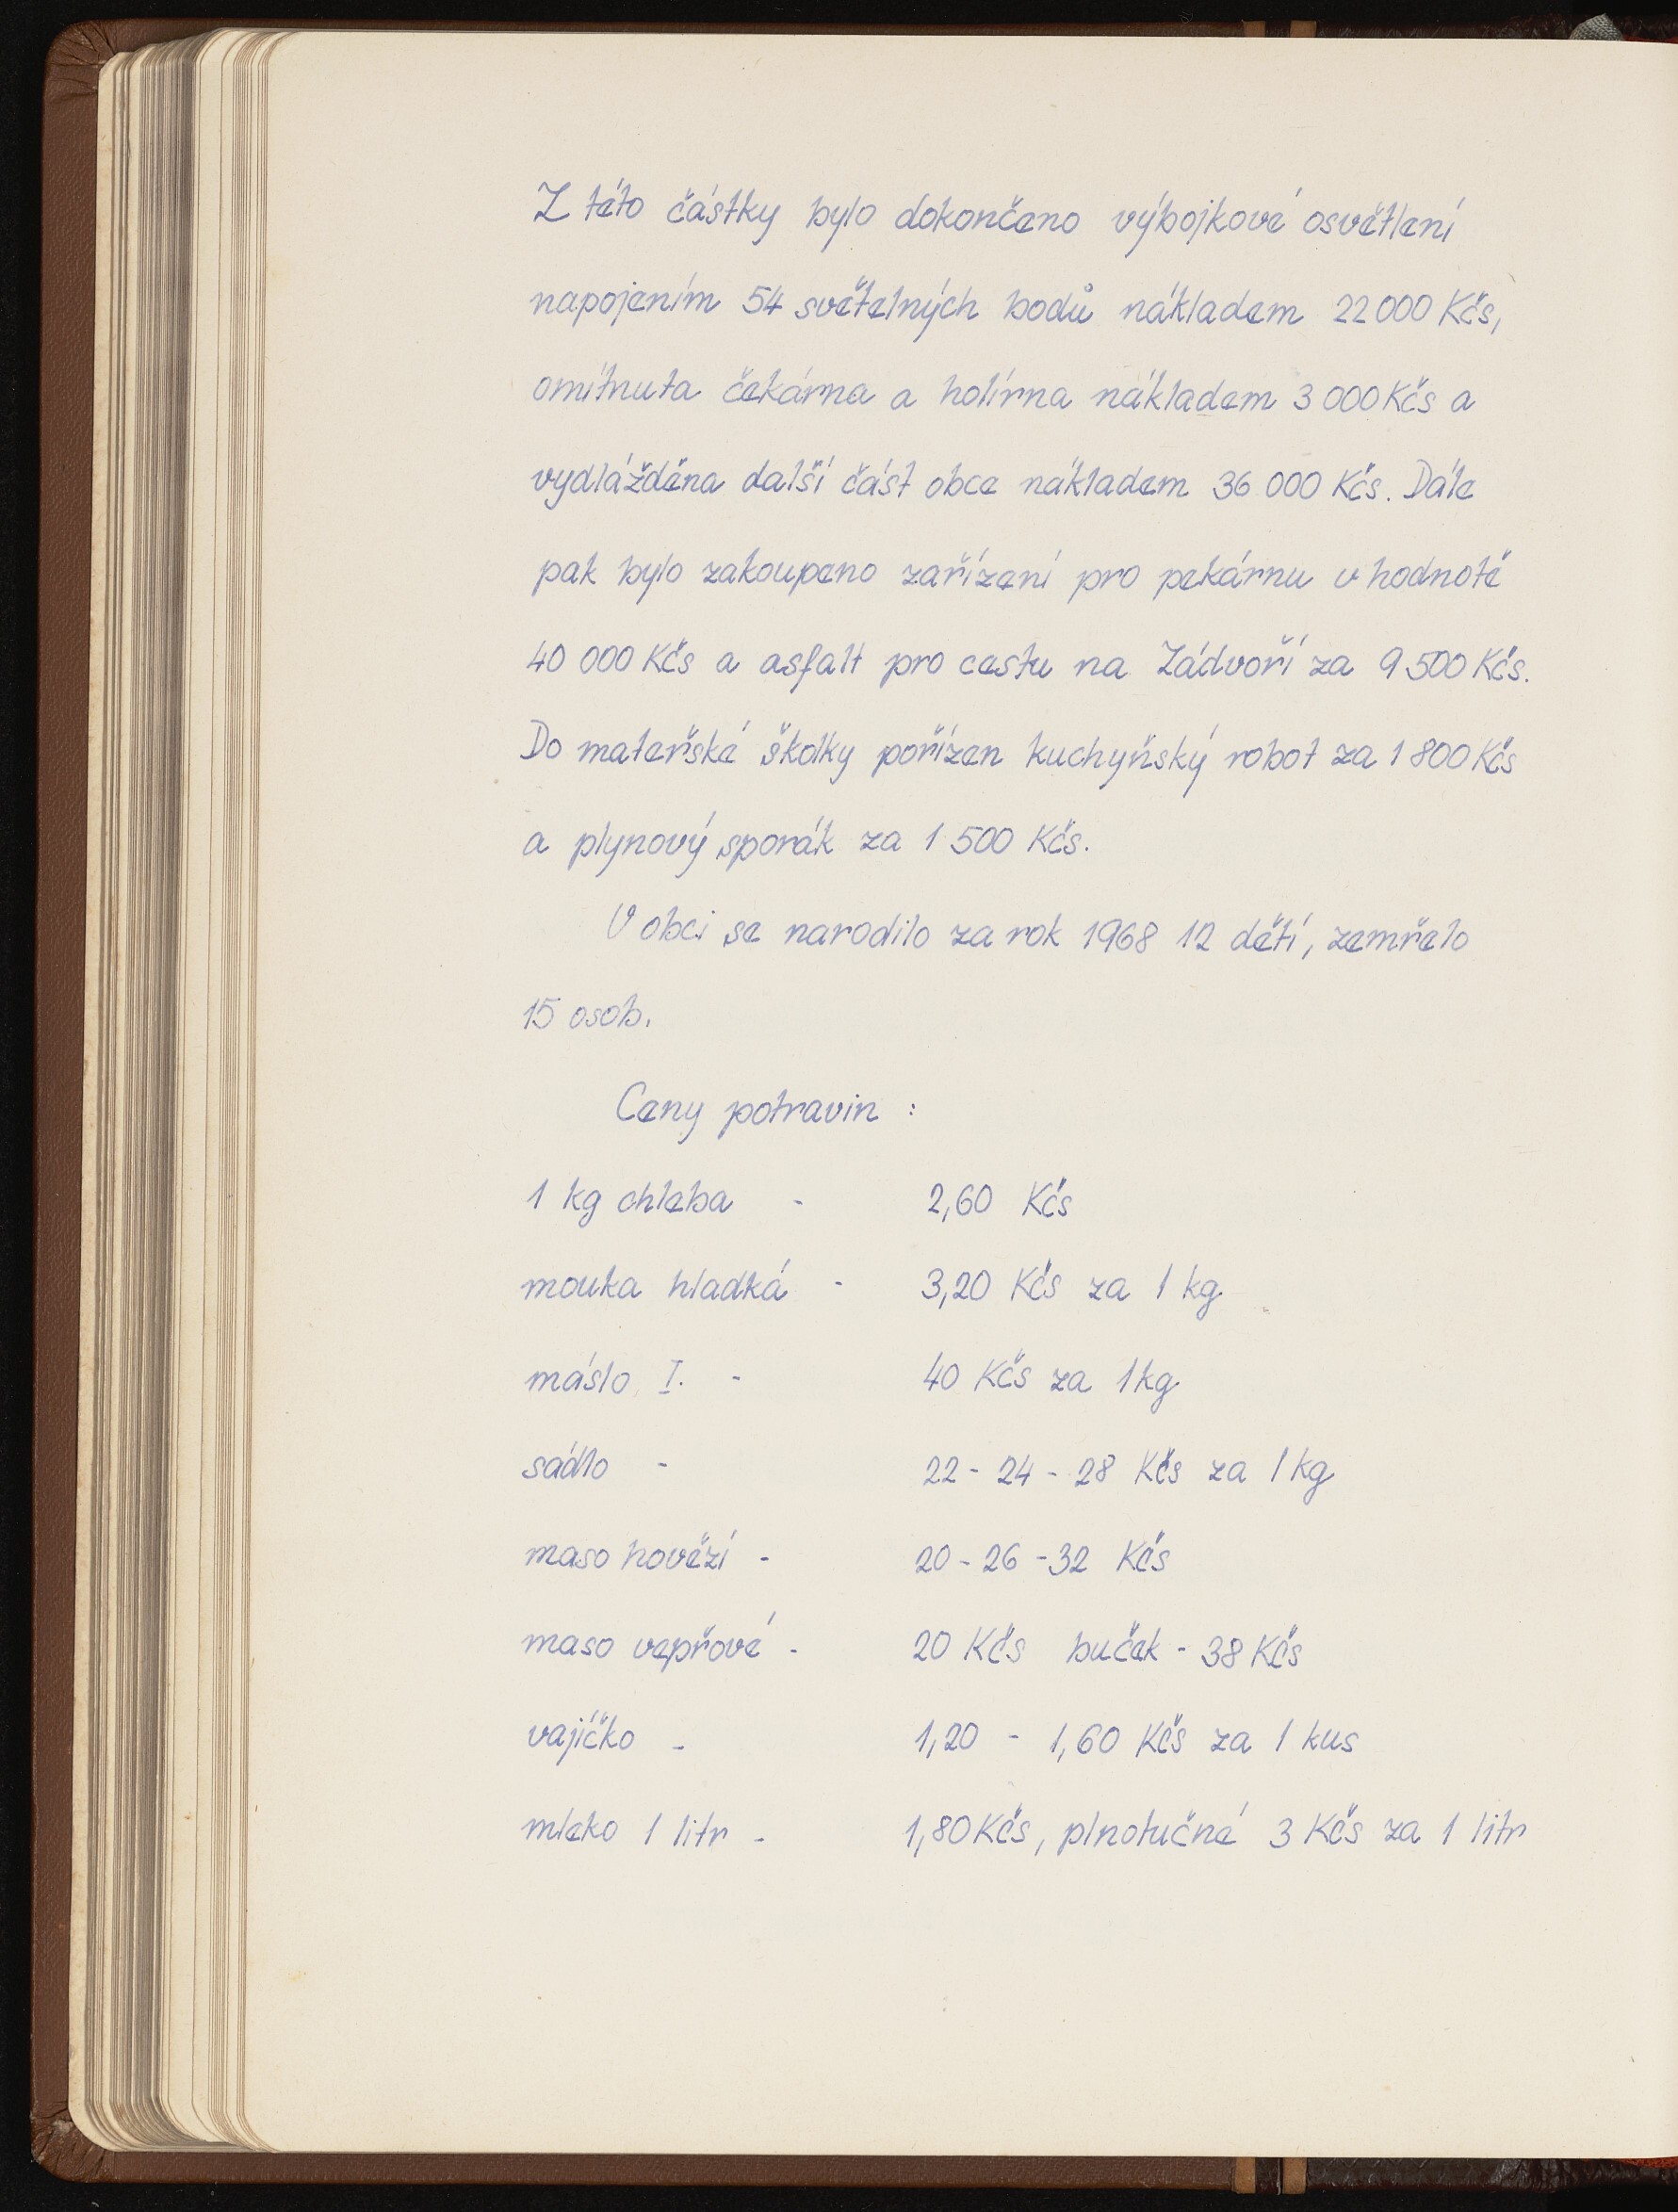 Z této částky bylo dokončeno výbojkové osvětlení
napojením 54 světelných bodů nákladem 22 000 Kčs,
omítnuta čekárna a holírna nákladem 3 000 Kčs a
vydlážděna další část obce nákladem 36 000 Kčs. Dále
pak bylo zakoupeno zařízení pro pekárnu v hodnotě
40 000 Kčs a asfalt pro cestu na Zádvoří za 9 500 Kčs.
Do mateřské školky pořízen kuchyňský robot za 1 800 Kčs
a plynový sporák za 1 500 Kčs.
V obci se narodilo za rok 1968 12 dětí, zemřelo
15 osob.
Ceny potravin :
1 kg chleba - 2,60 Kčs
mouka hladká - 3,20 Kčs za 1 kg
máslo I. - 40 Kčs za 1 kg
sádlo - 22 - 24 - 28 Kčs za 1 kg
maso hovězí - 20 - 26 - 32 Kčs
maso vepřové - 20 Kčs buček - 38 Kčs
vajíčko - 1,20 - 1,60 Kčs za 1 kus
mleko 1 litr - 1,80 Kčs, plnotučné 3 Kčs za 1 litr